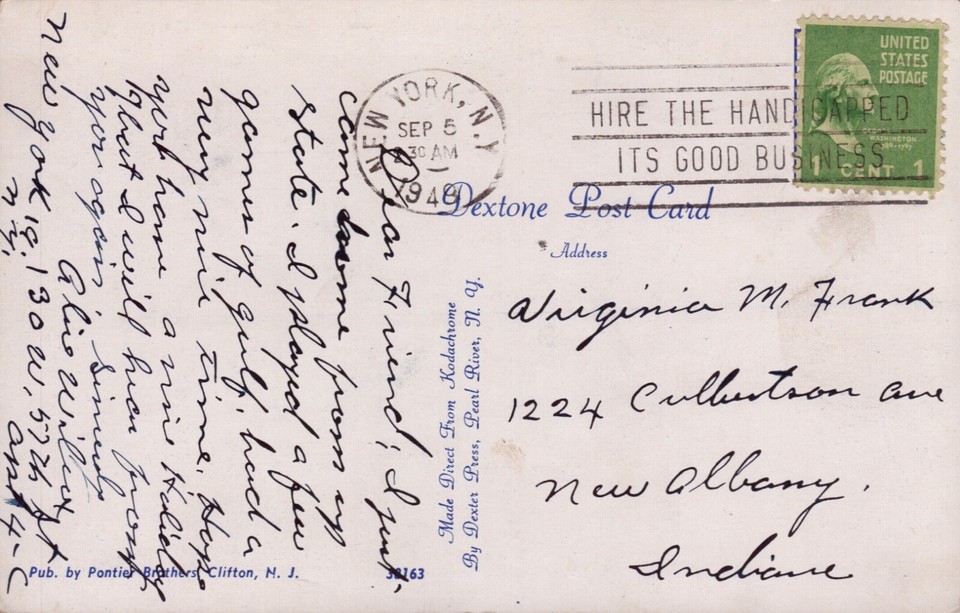 Dear Friend; I just
come home from up
state. I played a few
games of gulf, had a
very nice time. Hope
you have a nice Holiday
that I will hear from
you again. Sincerly
New York 19. 130 W. 57th St
N.Y. Apt 4-C
NEW YORK, N.Y.
SEP 5
30 AM
1948
HIRE THE HANDICAPPED
ITS GOOD BUSINESS
UNITED
STATES
POSTAGE
WASHINGTON
1 CENT 1
Dextone Post Card
Address
Made Direct From Kodachrome
By Dexter Press, Pearl River, N. Y.
Virginia M. Frank
1224 Culbertson Ave
New Albany.
Indiana
Pub. by Pontier Brothers, Clifton, N. J.